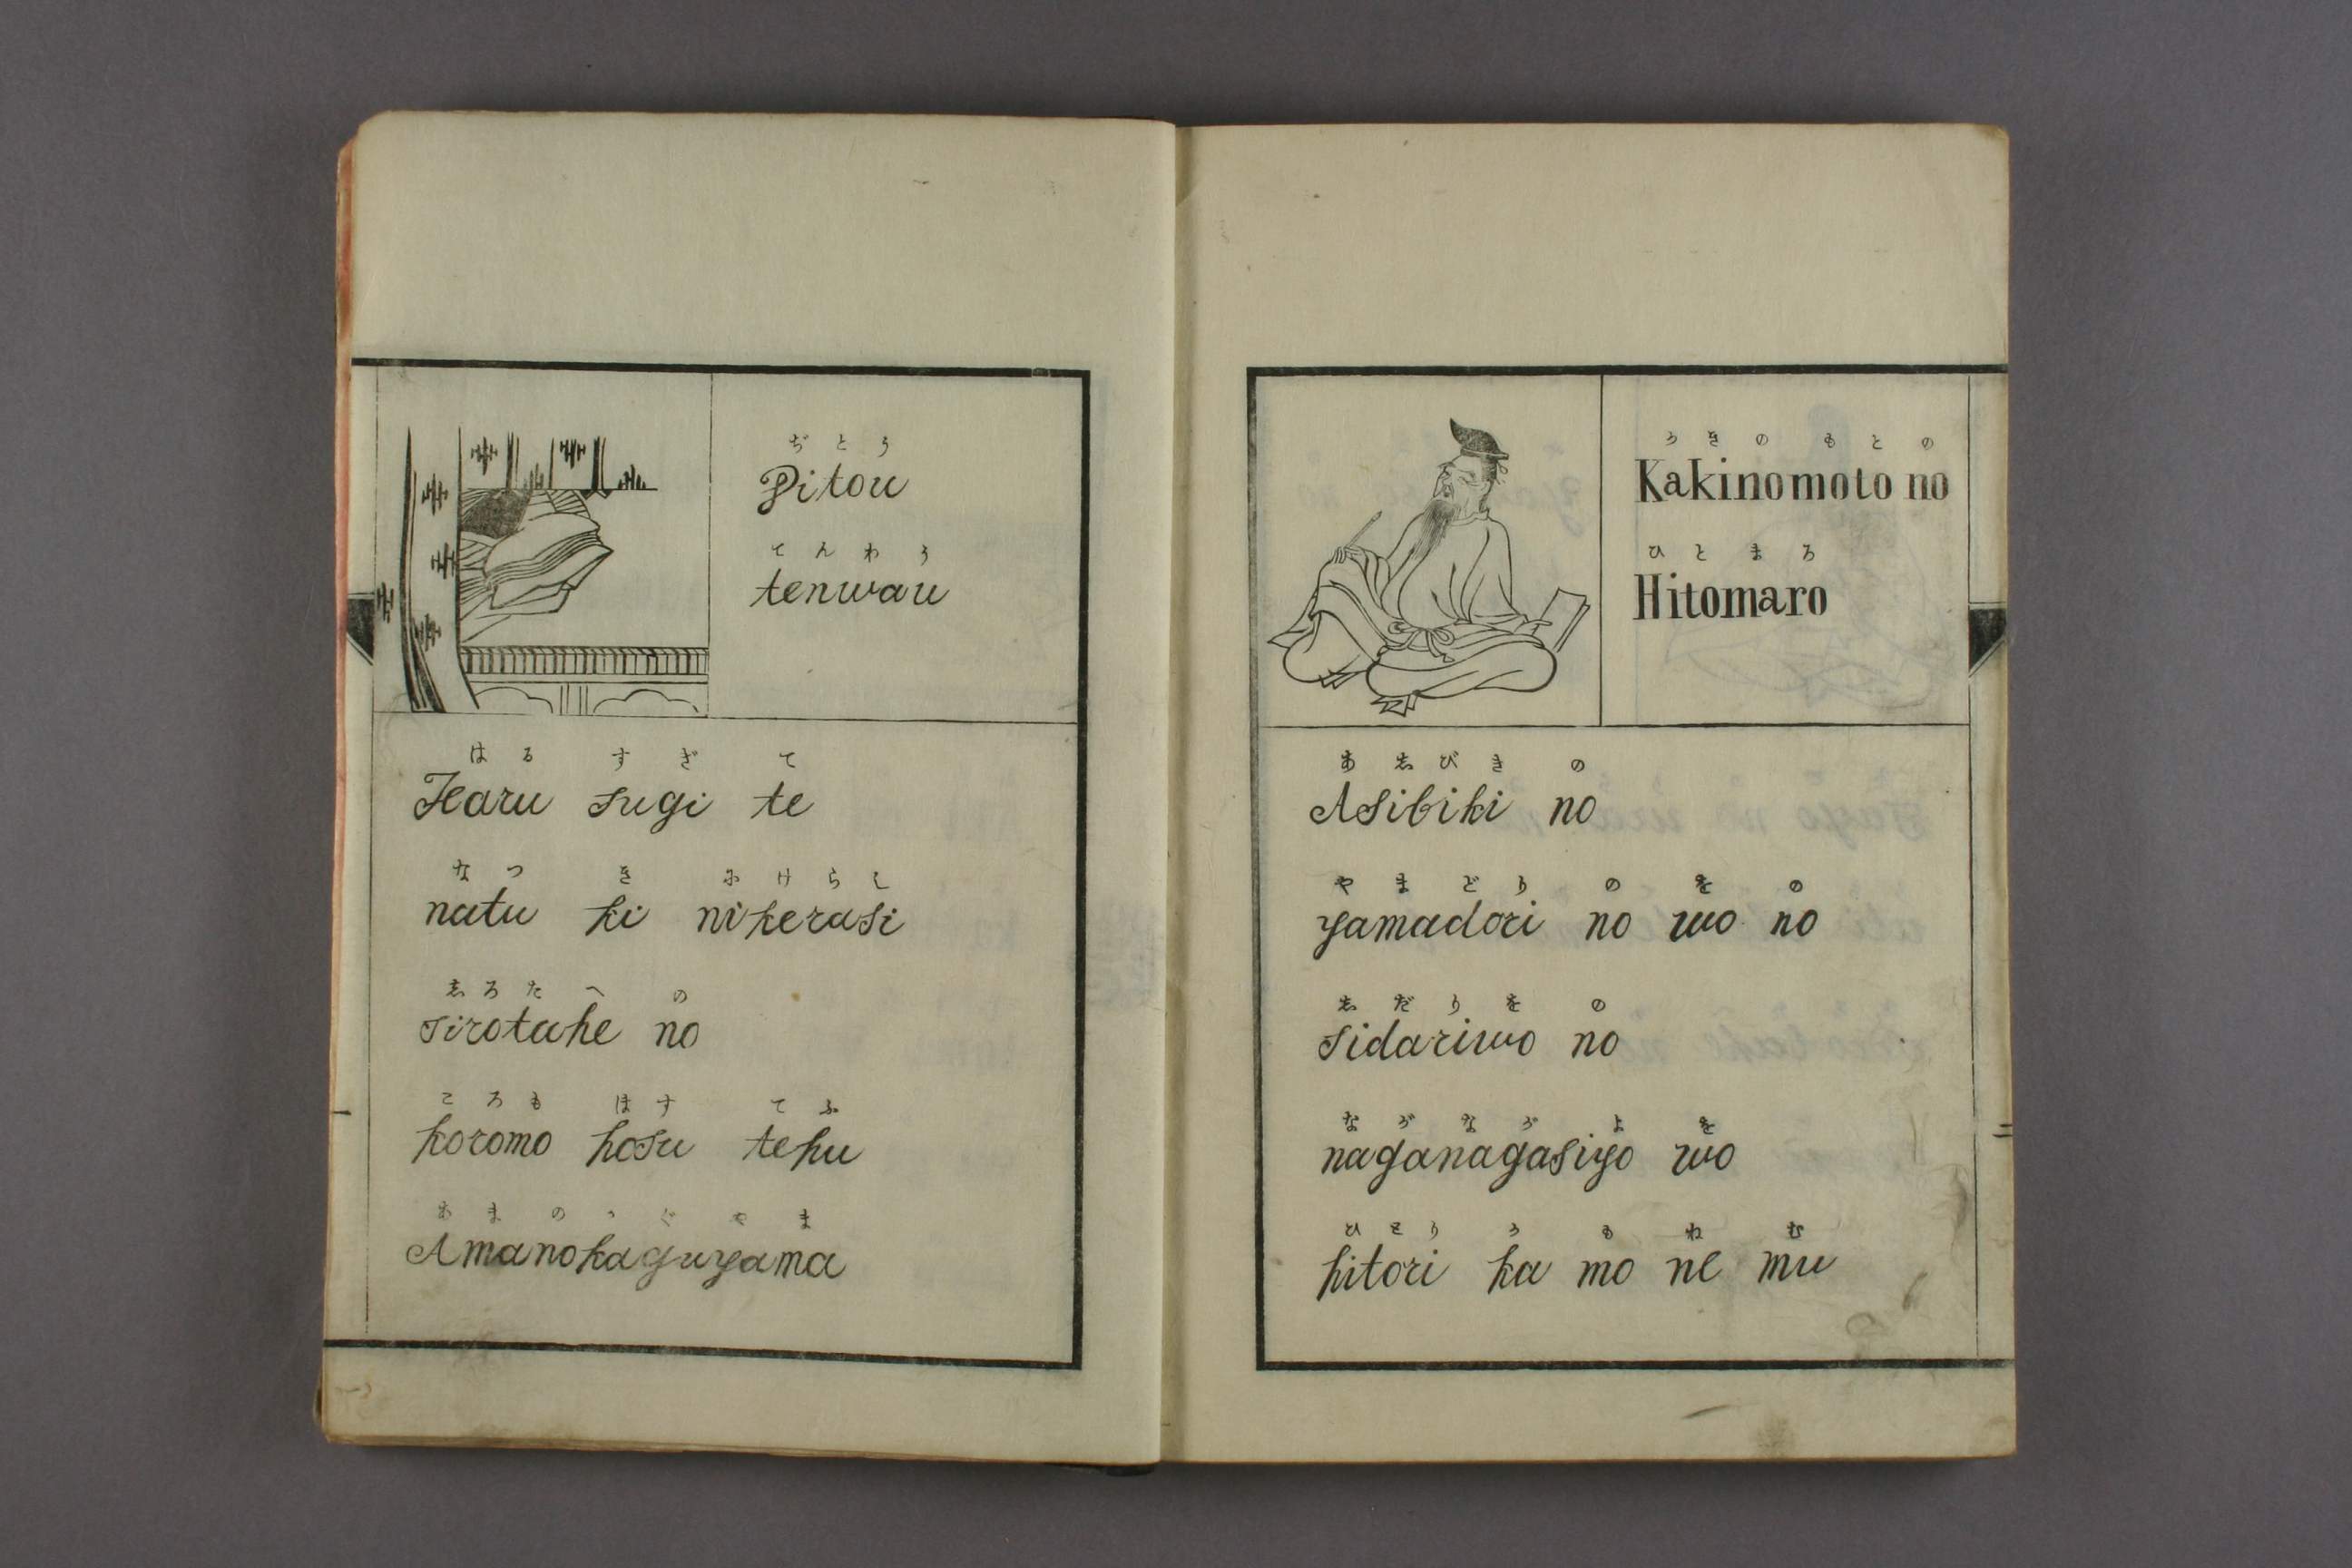 ぢとう
Ditou
てんわう
tenwau
はる すぎ て
Haru sugi te
なつ き にけらし
natu ki nikerasi
しろたへ の
sirotahe no
ころも ほす てふ
koromo hosu tehu
あまのかぐやま
Amanokaguyama
かきのもとの
Kakinomoto no
ひとまろ
Hitomaro
あしびき の
Asibiki no
やまどり の を の
yamadori no wo no
しだりを の
sidariwo no
ながながよ を
naganagasiyo wo
ひとり か も ね む
hitori ka mo ne mu